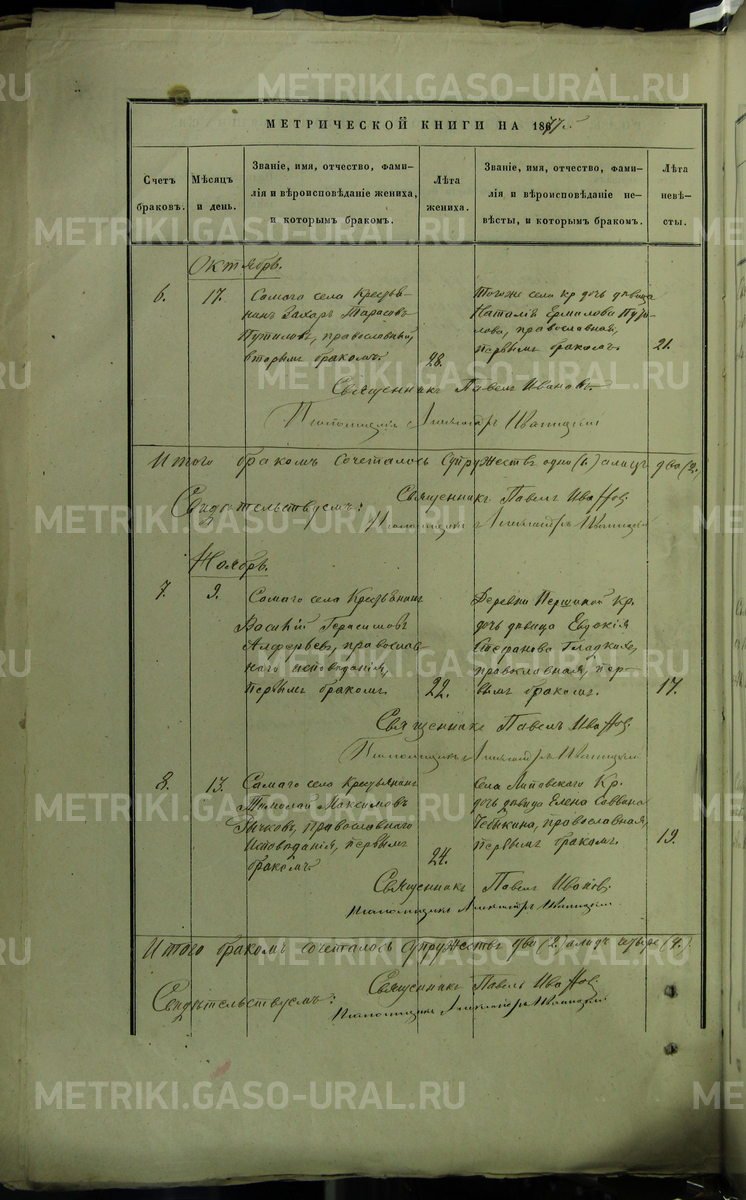 МЕТРИЧЕСКОЙ КНИГИ НА 1867
Счетъ браковъ.
Мѣсяцъ и день.
Званіе, имя, отчество, фами-
лія и вѣроисповѣданіе жениха,
и которымъ бракомъ.
Лѣта жениха.
Званіе, имя, отчество, фами-
лія и вѣроисповѣданіе не-
вѣсты, и которымъ бракомъ.
Лѣта невѣ-
сты.
Октябрь.
6. 17. Самаго села Крестья-
нинъ Захаръ Тарасовъ
Путиловъ, православный,
вторымъ бракомъ. 28.
Тогоже села кр дочь девица
Наталія Ермилова
православная,
первымъ бракомъ. 21.
Священникъ Павелъ Ивановъ.
Итого бракомъ сочеталось супружествъ одно (1.) а лицъ два (2.)
Свидѣтельствуемъ:
Священникъ Павелъ Ивановъ.
Ноябрь.
7. 9. Самаго села Крестьянинъ
Василій Герасимовъ
Алферьевъ, православ-
наго исповѣданія,
первымъ бракомъ. 22.
Деревни Першиной Кр.
дочь девица Евдокія
Стефанова Гладкихъ,
православная, пер-
вымъ бракомъ. 17.
Священникъ Павелъ Ивановъ.
8. 13. Самаго села Крестьянинъ
Тимофей Максимовъ
православнаго
исповѣданія, первымъ
бракомъ. 24.
Села Липовскаго Кр.
дочь девица Елена Саввина
Чебыкина, православная,
первымъ бракомъ. 19.
Священникъ Павелъ Ивановъ.
Итого бракомъ сочеталось супружествъ два (2.) а лицъ четыре (4.)
Свидѣтельствуемъ:
Священникъ Павелъ Ивановъ.
METRIKI.GASO-URAL.RU